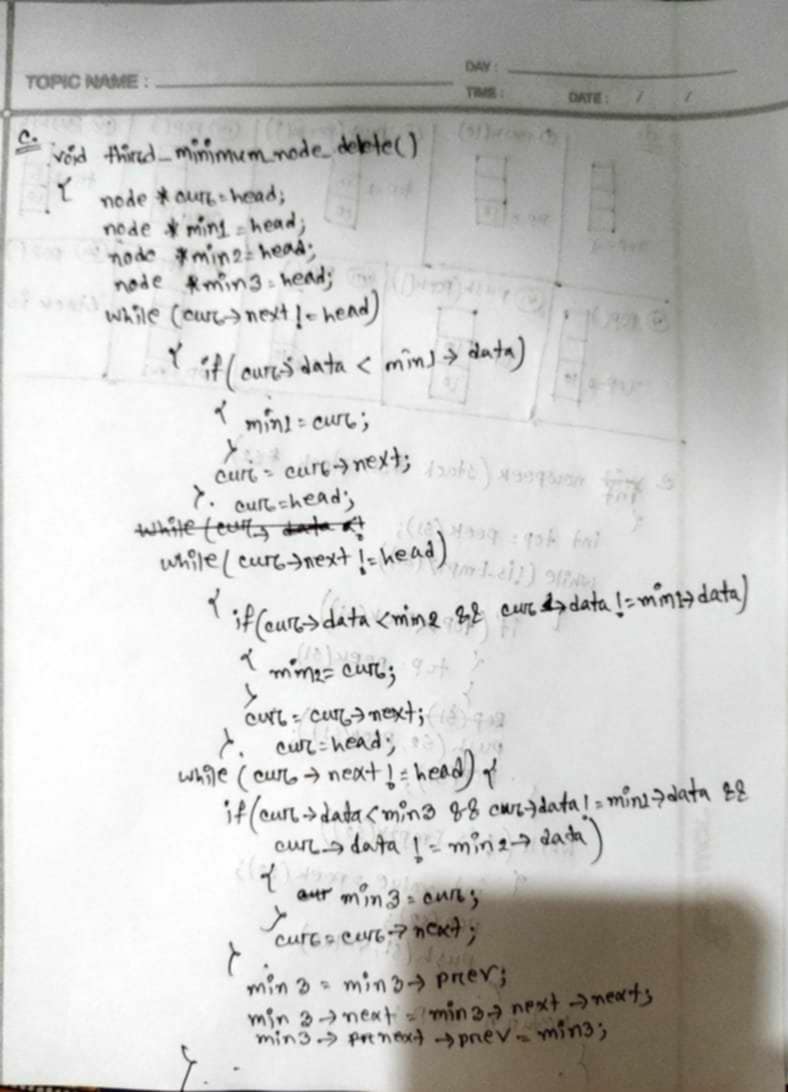 TOPIC NAME :
DAY :
TIME :
DATE : / /
c.
void third_minimum_node_delete()
{ node *cur=head;
node *min1 = head;
node *min2=head;
node *min3=head;
while (cur→next != head)
{ if(cur→data < min1→data)
{ min1=cur;
}
cur = cur→next;
}. cur=head;
while(cur→next != head)
{ if(cur→data <min2 && cur→data != min1→data)
{ min2= cur;
}
cur = cur→next;
}. cur=head;
while (cur→next != head) {
if(cur→data<min3 && cur→data != min1→data &&
cur→data != min2→data)
{ min3 = cur;
}
cur = cur→next;
}
min3 = min3→prev;
min3→next = min3→next→next;
min3→next→prev = min3;
}